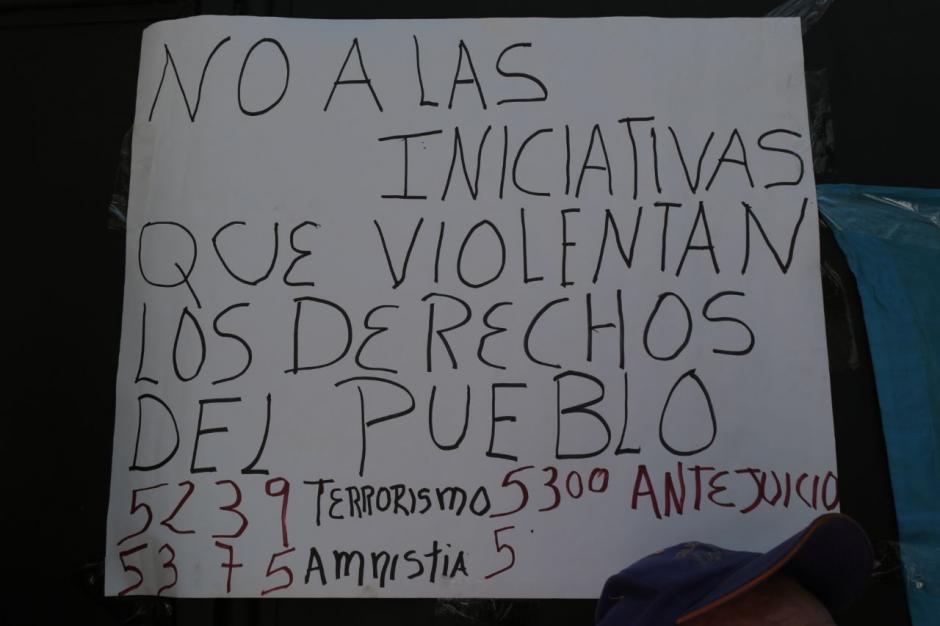 NO A LAS
INICIATIVAS
QUE VIOLENTAN
LOS DERECHOS
DEL PUEBLO
5239 TERRORISMO 5300 ANTEJUICIO
5375 AMNISTIA 5